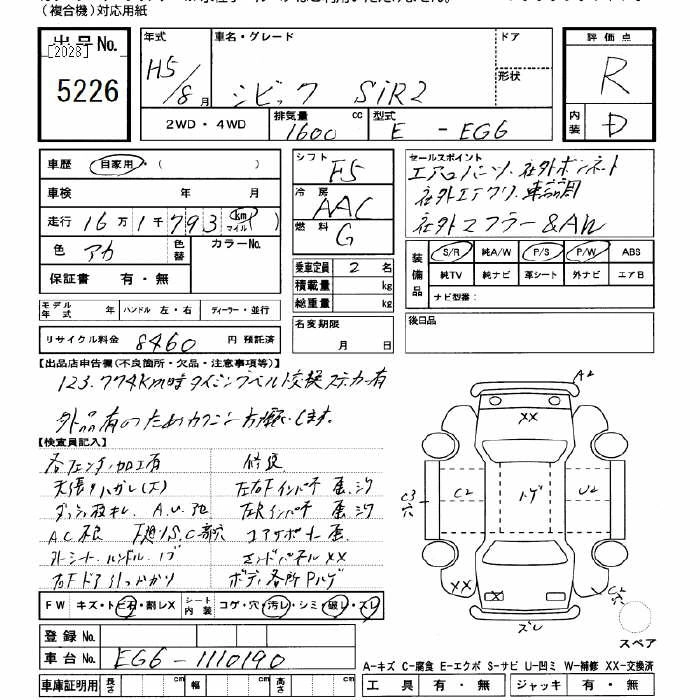 (複合機)対応用紙
出品No.
[2028]
5226
年式 車名・グレード ドア
H5/8月 シビック SiR2 形状
2WD・4WD 排気量 1600 cc 型式 E - EG6
評価点
R
内装 D
車歴 自家用・( )
車検 年 月
走行 16万1千793 km マイル
色 アカ 色替 カラーNo.
保証書 有・無
モデル年式 年 ハンドル 左・右 ディーラー・並行
リサイクル料金 8460 円 預託済
シフト F5
冷房 AAC
燃料 G
乗車定員 2 名
積載量 kg
総重量 kg
名変期限
月 日
セールスポイント
エアロパーツ、社外ボンネット
社外エアクリ、車高調
社外マフラー&AW
装備品 S/R 純A/W P/S P/W ABS
純TV 純ナビ 革シート 外ナビ エアB
ナビ型番:
後日品
【出品店申告欄(不良箇所・欠品・注意事項等)】
123.774km時タイミングベルト交換ステッカー有
【検査員記入】
各フェンダー加工有 修復
天張りハガレ(大)
コアサポート
エンドパネルXX
右Fドア引っかかり ボディ各所Pハゲ
FW キズ・トビ石・割レX シート内装 コゲ・穴・汚レ・シミ・破レ・スレ
登録No.
車台No. EG6-1110190
車庫証明用 長さ cm 幅 cm 高さ cm
A2
XX
C3
穴
C2
ハゲ
U2
XX
X
C2
穴
ズレ
スペア
A-キズ C-腐食 E-エクボ S-サビ U-凹ミ W-補修 XX-交換済
工具 有・無 ジャッキ 有・無